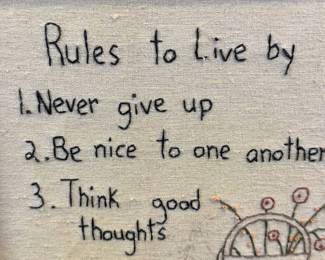 Rules to Live by
1. Never give up
2. Be nice to one another
3. Think good
thoughts